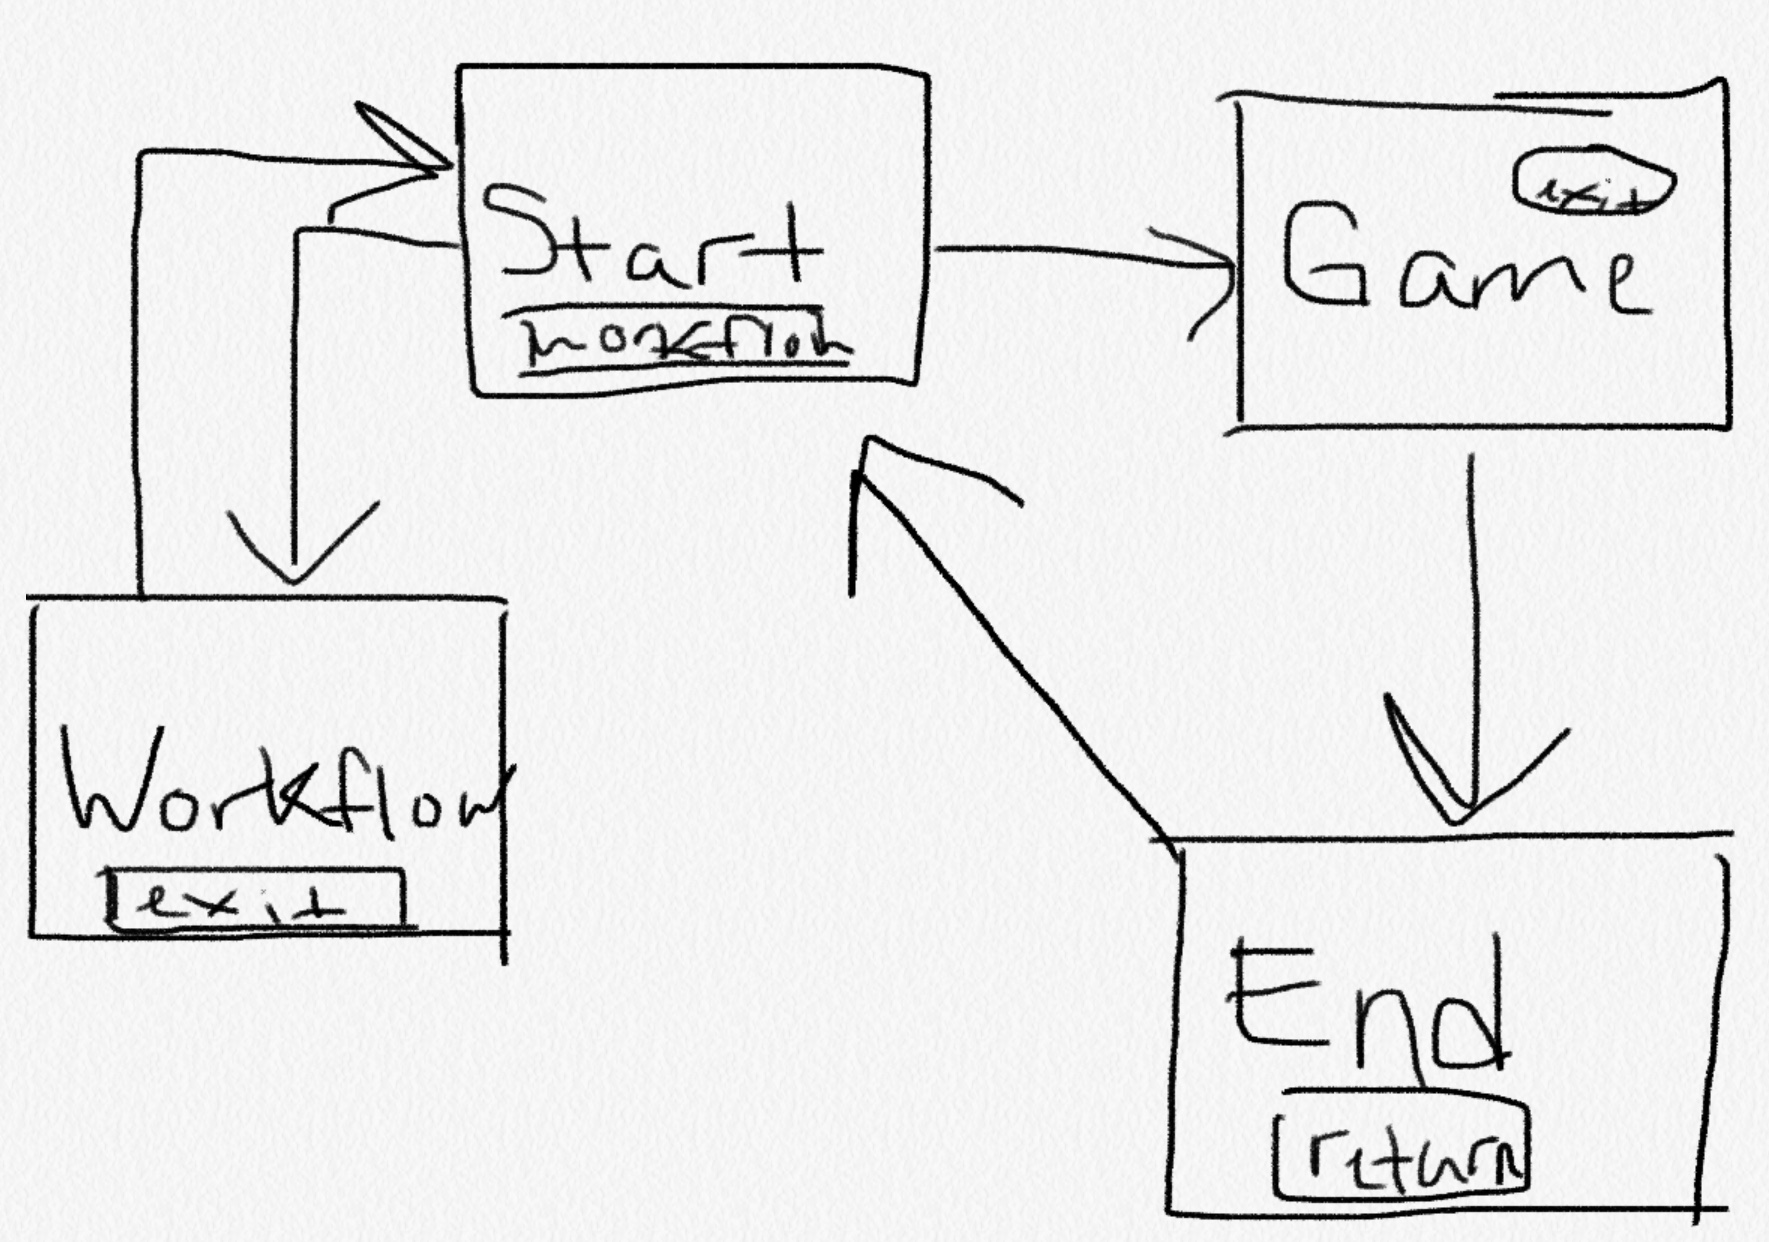 Start
workflow
Game
exit
Workflow
exit
End
return